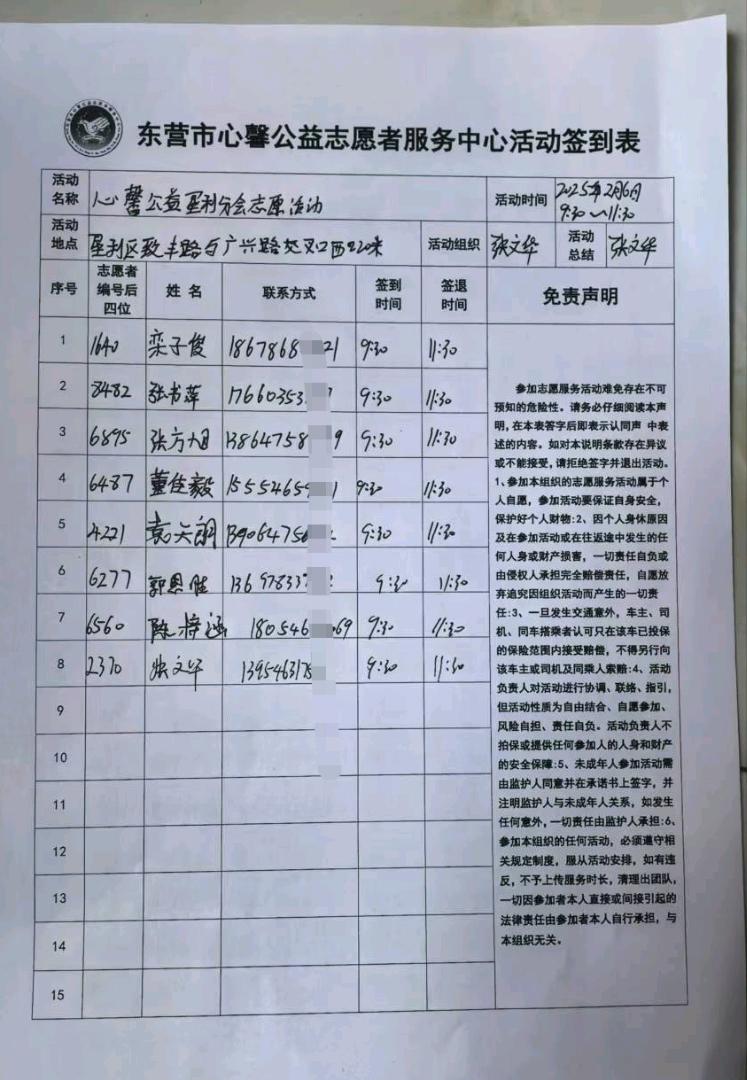 东营市心馨公益志愿者服务中心活动签到表
活动名称 心馨公益垦利分会志愿活动 活动时间 2025年2月6日 9:30~11:30
活动地点 垦利区致丰路与广兴路交叉口西220米 活动组织 张文华 活动总结 张文华
序号 志愿者编号后四位 姓名 联系方式 签到时间 签退时间 免责声明
1 1640 栾子俊 1867868 21 9:30 11:30
2 8482 张书萍 17660353 9:30 11:30
3 6895 张方旭 13864758 9 9:30 11:30
4 6487 董佳毅 15554659 1 9:30 11:30
5 4221 袁天朗 139064756 9:30 11:30
6 6277 郭恩胜 13697833 9:30 11:30
7 6560 陈梓涵 180546 069 9:30 11:30
8 2370 张文华 1395463178 9:30 11:30
9
10
11
12
13
14
15
参加志愿服务活动难免存在不可
预知的危险性。请务必仔细阅读本声
明,在本表签字后即表示认同声 中表
述的内容。如对本说明条款存在异议
或不能接受,请拒绝签字并退出活动。
1、参加本组织的志愿服务活动属于个
人自愿,参加活动要保证自身安全,
保护好个人财物:2、因个人身体原因
及在参加活动或在往返途中发生的任
何人身或财产损害,一切责任自负或
由侵权人承担完全赔偿责任,自愿放
弃追究因组织活动而产生的一切责
任:3、一旦发生交通意外,车主、司
机、同车搭乘者认可只在该车已投保
的保险范围内接受赔偿,不得另行向
该车主或司机及同乘人索赔:4、活动
负责人对活动进行协调、联络、指引,
但活动性质为自由结合、自愿参加、
风险自担、责任自负。活动负责人不
担保或提供任何参加人的人身和财产
的安全保障:5、未成年人参加活动需
由监护人同意并在承诺书上签字,并
注明监护人与未成年人关系,如发生
任何意外,一切责任由监护人承担:6、
参加本组织的任何活动,必须遵守相
关规定制度,服从活动安排,如有违
反,不予上传服务时长,清理出团队,
一切因参加者本人直接或间接引起的
法律责任由参加者本人自行承担,与
本组织无关。